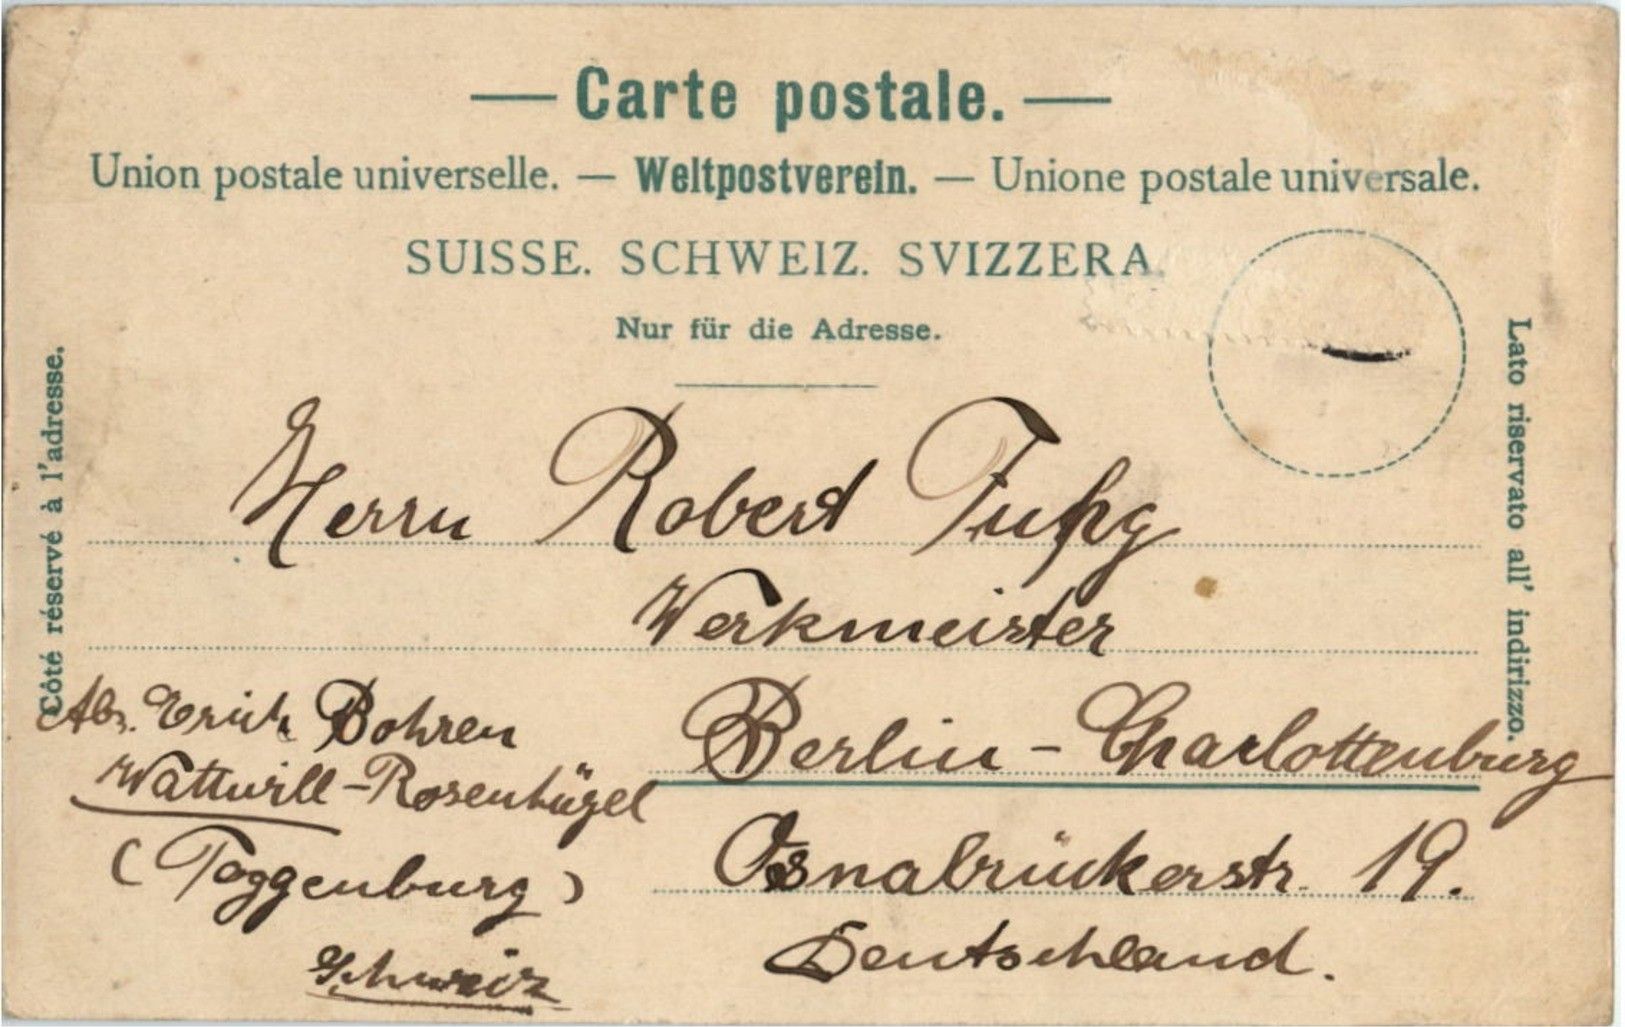 Carte postale.
Union postale universelle. — Weltpostverein. — Unione postale universale.
SUISSE. SCHWEIZ. SVIZZERA.
Nur für die Adresse.
Côté réservé à l'adresse.
Lato riservato all' indirizzo.
Herrn Robert Fuhg
Werkmeister
Berlin - Charlottenburg
Osnabrückerstr. 19.
Deutschland.
Abs. Erich Bohren
Wattwill - Rosenhügel
(Toggenburg)
Schweiz